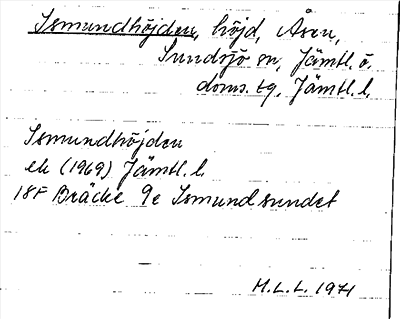 Ismundhöjden, höjd, Åsen,
Sundsjö sn, Jämtl. ö.
doms. tg, Jämtl. l.
Ismundhöjden
ek (1969) Jämtl. l.
18F Bräcke 9e Ismundsundet
H.L.L. 1971